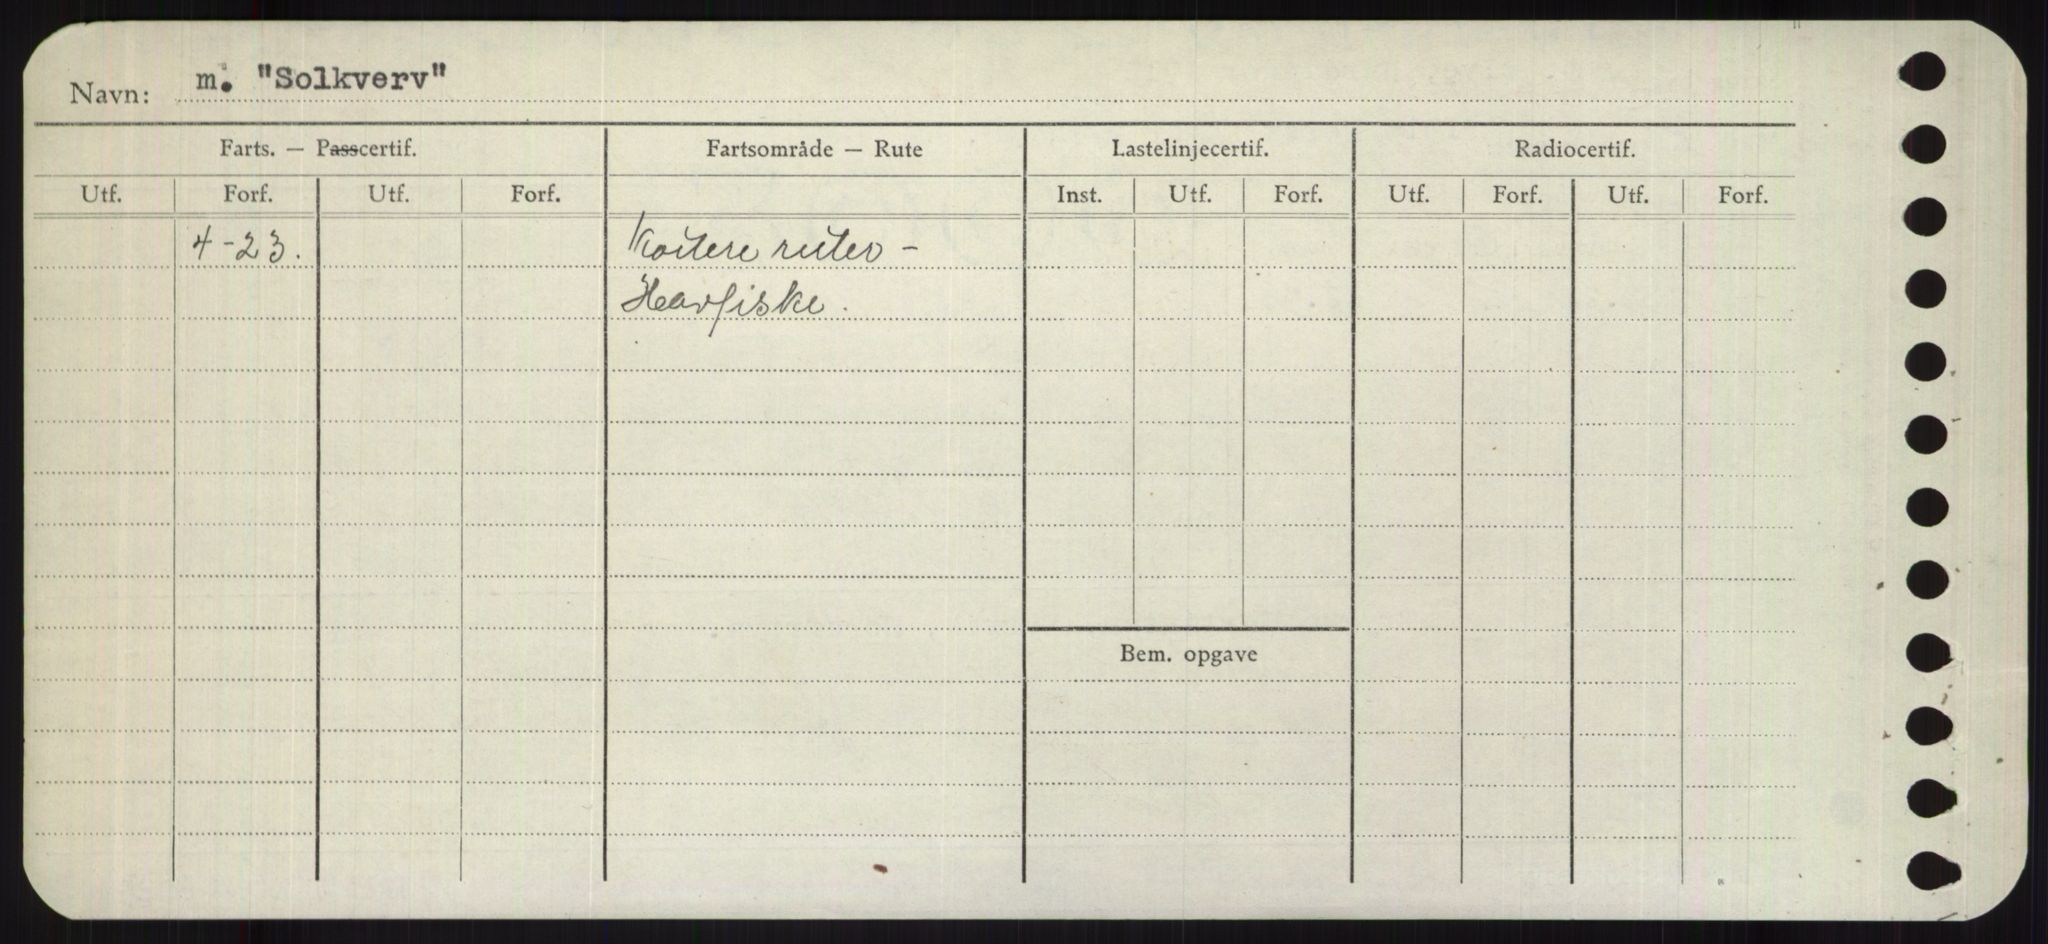 Navn: m. "Solkverv"
Farts. — Passcertif. Fartsområde — Rute Lastelinjecertif. Radiocertif.
Utf. Forf. Utf. Forf. Inst. Utf. Forf. Utf. Forf. Utf. Forf.
4-23. Kortere ruter -
Havfiske.
Bem. opgave